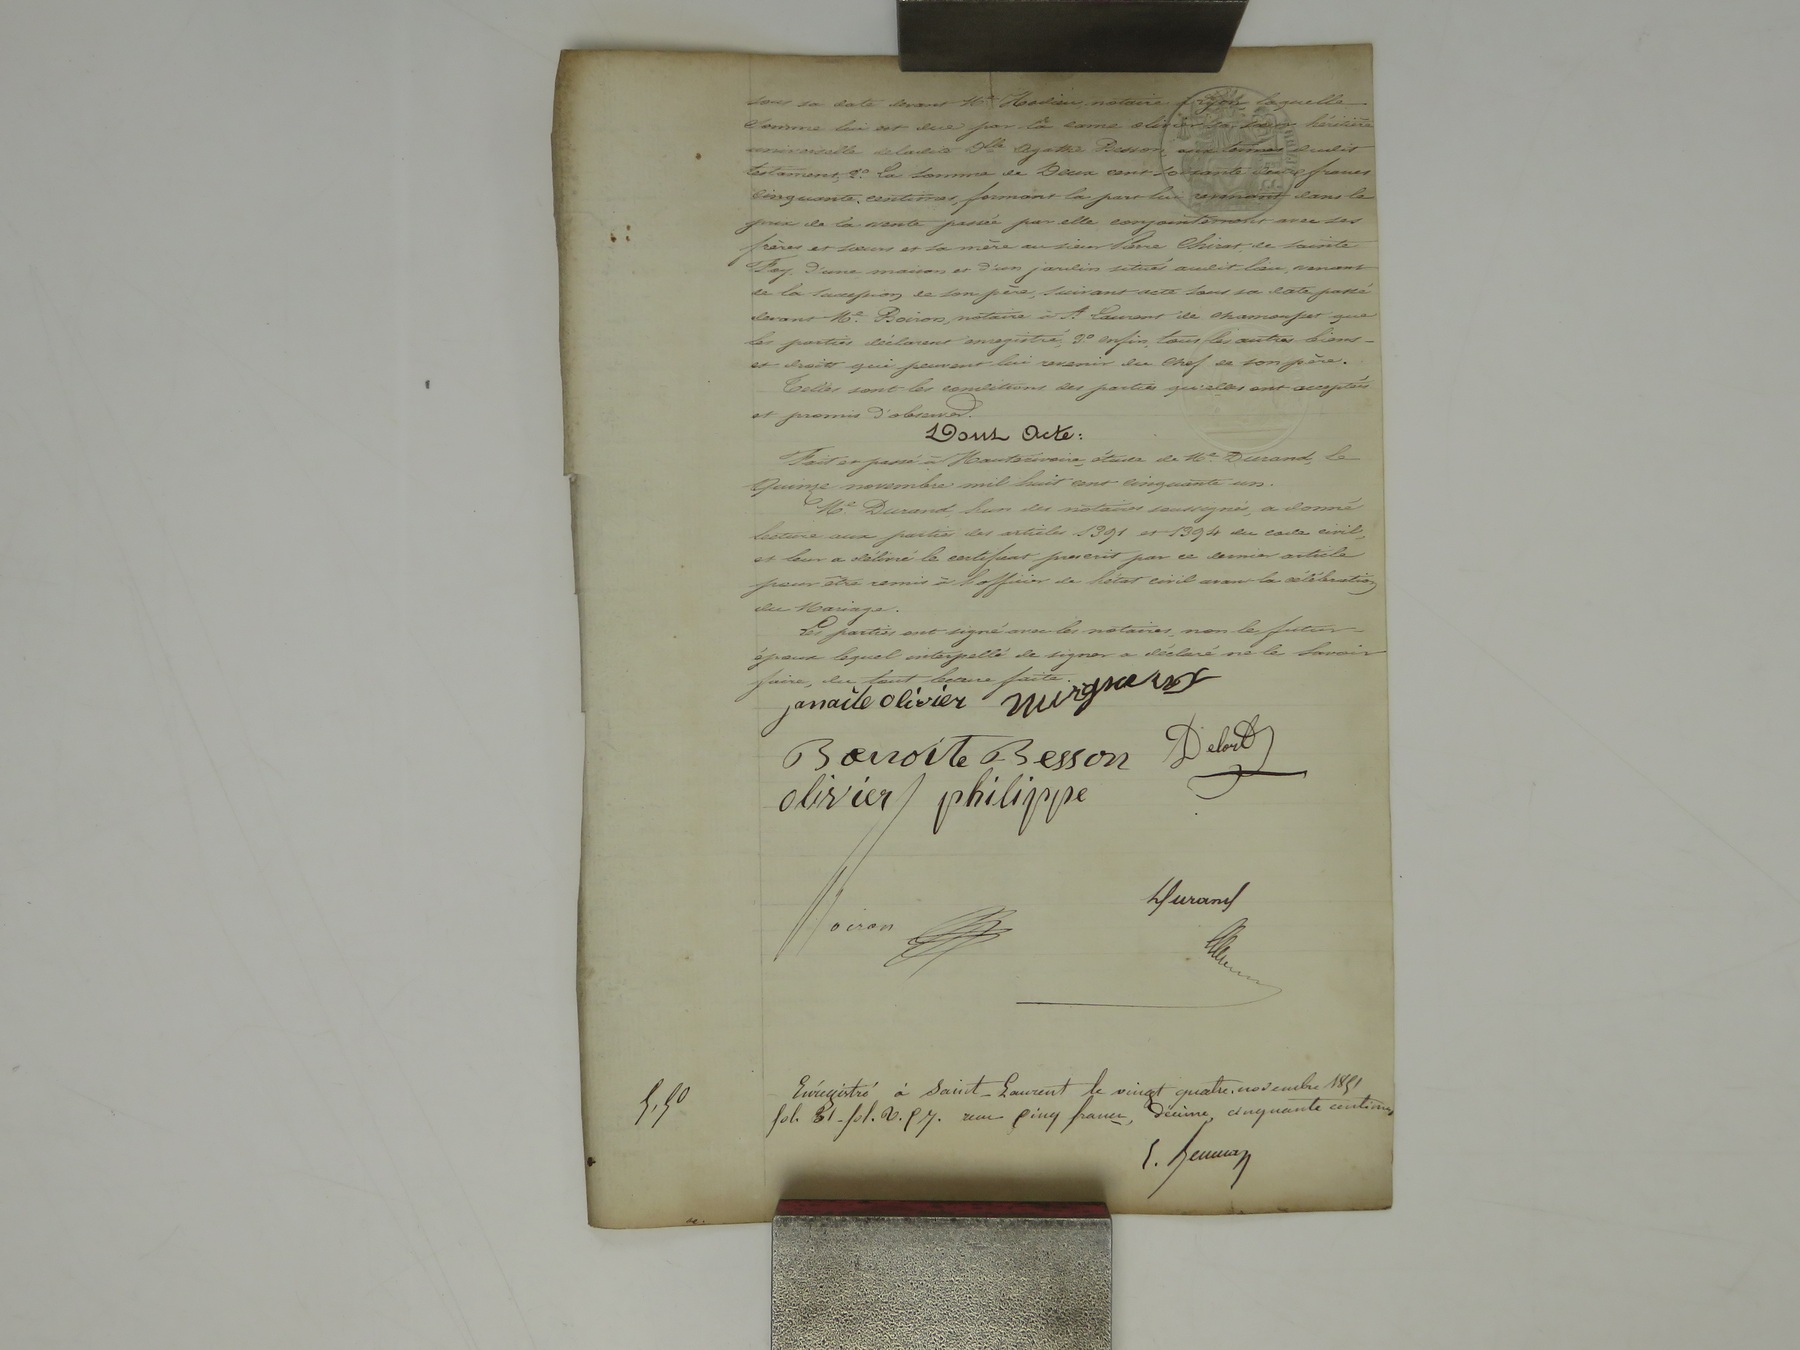 sous sa date devant Me Hodieu, notaire à Lyon, laquelle
somme lui est due par la dame olivier, sa sœur héritière
universelle de ladite Dlle Agathe Besson, aux termes dudit
testament, 2º la somme de Deux cent soixante deux francs
Cinquante centimes, formant la part lui revenant dans le
prix de la vente passée par elle conjointement avec ses
frères et sœurs et sa mère au sieur Pierre Chirat de sainte
Foy, d'une maison et d'un jardin situés audit lieu, venant
de la succession de son père, suivant acte sous sa date passé
devant Me Boiron, notaire à St Laurent de chamousset que
les parties déclarent enregistré, 3º enfin, tous les autres biens
et droits qui peuvent lui revenir du chef de son père.
Telles sont les conditions des parties qu'elles ont acceptées
et promis d'observer.
Dont Acte:
Fait et passé à Hauterivoire, étude de Me Durand, le
Quinze novembre mil huit cent cinquante un.
Me Durand, l'un des notaires soussignés, a donné
lecture aux parties des articles 1391 et 1394 du code civil,
et leur a délivré le certificat prescrit par ce dernier article
pour être remis à l'officier de l'état civil avant la célébration
du Mariage.
Les parties ont signé avec les notaires, non le futur
époux lequel interpellé de signer a déclaré ne le savoir
faire, du tout lecture faite.
olivier
Benoite Besson Delord
olivier philippe
Boiron Durand
5,50
Enregistré à Saint-Laurent le vingt quatre novembre 1851
fol. 31 reçu cinq francs, décime cinquante centimes